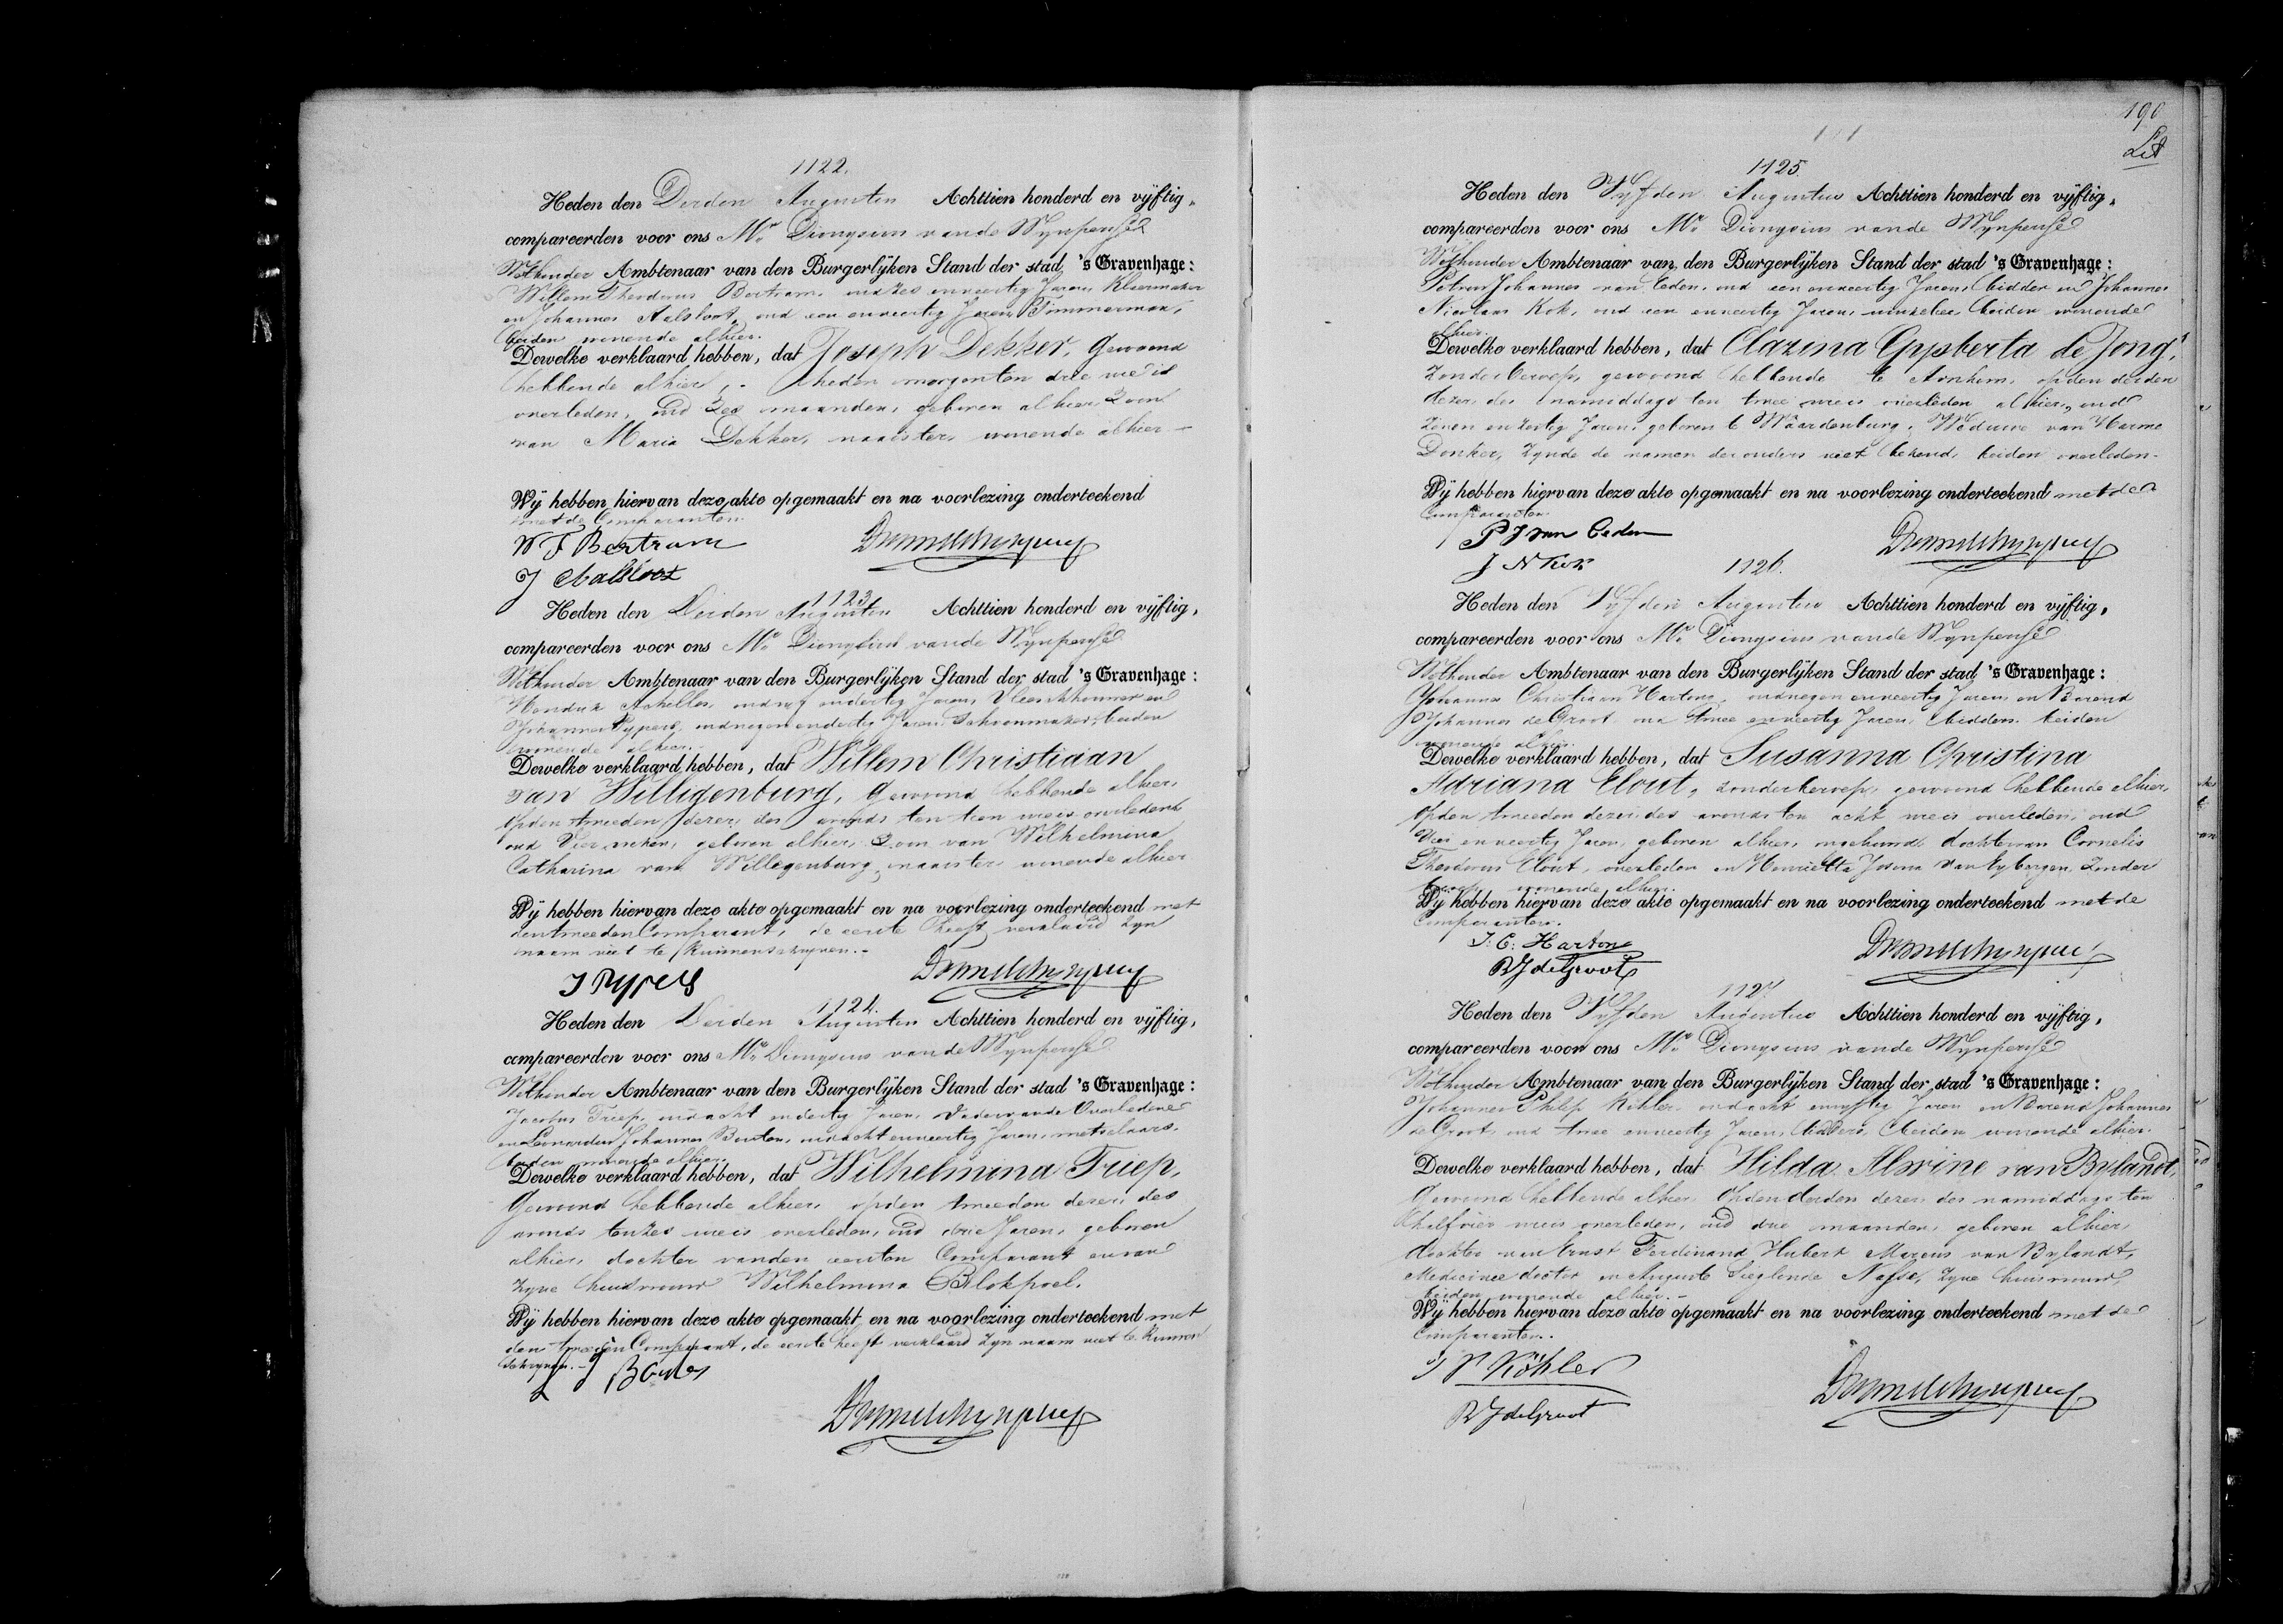 1122.
Heden den Derden Augustus Achttien honderd en vijftig,
compareerden voor ons Mr. Dionysius vande Wynpersse
Wethouder Ambtenaar van den Burgerlijken Stand der stad 's Gravenhage:
Willem Theodorus Bertram, oud zes enveertig Jaren, Kleermaker
en Johannes Aalsloot, oud een enveertig Jaren, Timmerman,
beiden wonende alhier.
Dewelke verklaard hebben, dat Joseph Dekker, Gewoond
hebbende alhier, heden morgen ten drie ure is
overleden, oud zes maanden, geboren alhier, Zoon
van Maria Dekker, naaister, wonende alhier
Wij hebben hiervan deze akte opgemaakt en na voorlezing onderteekend
met de Comparanten.
W T Bertram
J Aalsloot
1123.
Heden den Derden Augustus Achttien honderd en vijftig,
compareerden voor ons Mr. Dionysius vande Wynpersse
Wethouder Ambtenaar van den Burgerlijken Stand der stad 's Gravenhage:
Hendrik Achilles, oud endertig Jaren, Vleeschhouwer en
Johannes Rypers, oud negen endertig Jaren, Schoenmaker, beiden
wonende alhier.
Dewelke verklaard hebben, dat Willem Christiaan
van Willigenburg, Gewoond hebbende alhier,
op den tweeden dezer, des avonds ten tien ure is overleden
oud Vier weken, geboren alhier, Zoon van Wilhelmina
Catharina van Willegenburg, naaister, wonende alhier
Wij hebben hiervan deze akte opgemaakt en na voorlezing onderteekend met
den tweeden Comparant, de eerste heeft verklaard zyn
naam niet te kunnen schryven.
J Rypers
1124.
Heden den Derden Augustus Achttien honderd en vijftig,
compareerden voor ons Mr. Dionysius vande Wynpersse
Wethouder Ambtenaar van den Burgerlijken Stand der stad 's Gravenhage:
Jacobus Triep, oud acht endertig Jaren, Vader vande Overledene
en Leonardus Johannes Bouten, oud acht enveertig Jaren, metselaars,
beiden wonende alhier.
Dewelke verklaard hebben, dat Wilhelmina Triep,
Gewoond hebbende alhier, op den tweeden dezer, des
avonds ten zes ure is overleden, oud drie Jaren, geboren
alhier, dochter vanden eersten Comparant en van
zyne huisvrouw Wilhelmina Blokpoel.
Wij hebben hiervan deze akte opgemaakt en na voorlezing onderteekend met
den tweeden Comparant, de eerste heeft verklaard zyn naam niet te kunnen
schryven.
L J Bouten
190
1125.
Heden den Vyfden Augustus Achttien honderd en vijftig,
compareerden voor ons Mr. Dionysius vande Wynpersse
Wethouder Ambtenaar van den Burgerlijken Stand der stad 's Gravenhage:
Petrus Johannes van Ceden, oud een enveertig Jaren, bidder en Johannes
Nicolaas Kok, oud een enveertig Jaren, winkelier, beiden wonende
alhier.
Dewelke verklaard hebben, dat Clazina Gysberta de Jong,
Zonder beroep, gewoond hebbende te Arnhem, op den derden
dezer, des namiddags ten twee ure is overleden alhier, oud
Zeven en zestig Jaren, geboren te Waardenburg, Weduwe van Harme
Donker, zynde de namen der ouders niet bekend, beiden overleden.
Wij hebben hiervan deze akte opgemaakt en na voorlezing onderteekend met de
Comparanten.
P J van Ceden
J N Kok
1126.
Heden den Vyfden Augustus Achttien honderd en vijftig,
compareerden voor ons Mr. Dionysius vande Wynpersse
Wethouder Ambtenaar van den Burgerlijken Stand der stad 's Gravenhage:
Johannes Christiaan Hartong, oud negen enveertig Jaren, en Barend
Johannes de Groot, oud twee enveertig Jaren, bidders, beiden
wonende alhier.
Dewelke verklaard hebben, dat Susanna Christina
Adriana Elout, zonder beroep, gewoond hebbende alhier,
op den tweeden dezer, des avonds ten acht ure is overleden, oud
Vier enveertig Jaren, geboren alhier, ongehuwd, dochter van Cornelis
Theodorus Elout, overleden en Henrietta Josina van Eybergen, Zonder
beroep, wonende alhier.
Wij hebben hiervan deze akte opgemaakt en na voorlezing onderteekend met de
Comparanten.
J. C. Hartong
B J de Groot
1127.
Heden den Vyfden Augustus Achttien honderd en vijftig,
compareerden voor ons Mr. Dionysius vande Wynpersse
Wethouder Ambtenaar van den Burgerlijken Stand der stad 's Gravenhage:
Johannes Philip Köhler, oud acht envyftig Jaren en Barend Johannes
de Groot, oud twee enveertig Jaren, bidders, beiden wonende alhier.
Dewelke verklaard hebben, dat Hilda Alwine van Bylandt,
Gewoond hebbende alhier, op den derden dezer, des namiddags ten
half vier ure is overleden, oud drie maanden, geboren alhier,
dochter van Ernst Ferdinand Hubert Marcus van Bylandt,
Medicinae doctor en Auguste Sieglende Nasse, zyne huisvrouw,
beiden wonende alhier.
Wij hebben hiervan deze akte opgemaakt en na voorlezing onderteekend met de
Comparanten.
J P Köhler
B J de Groot